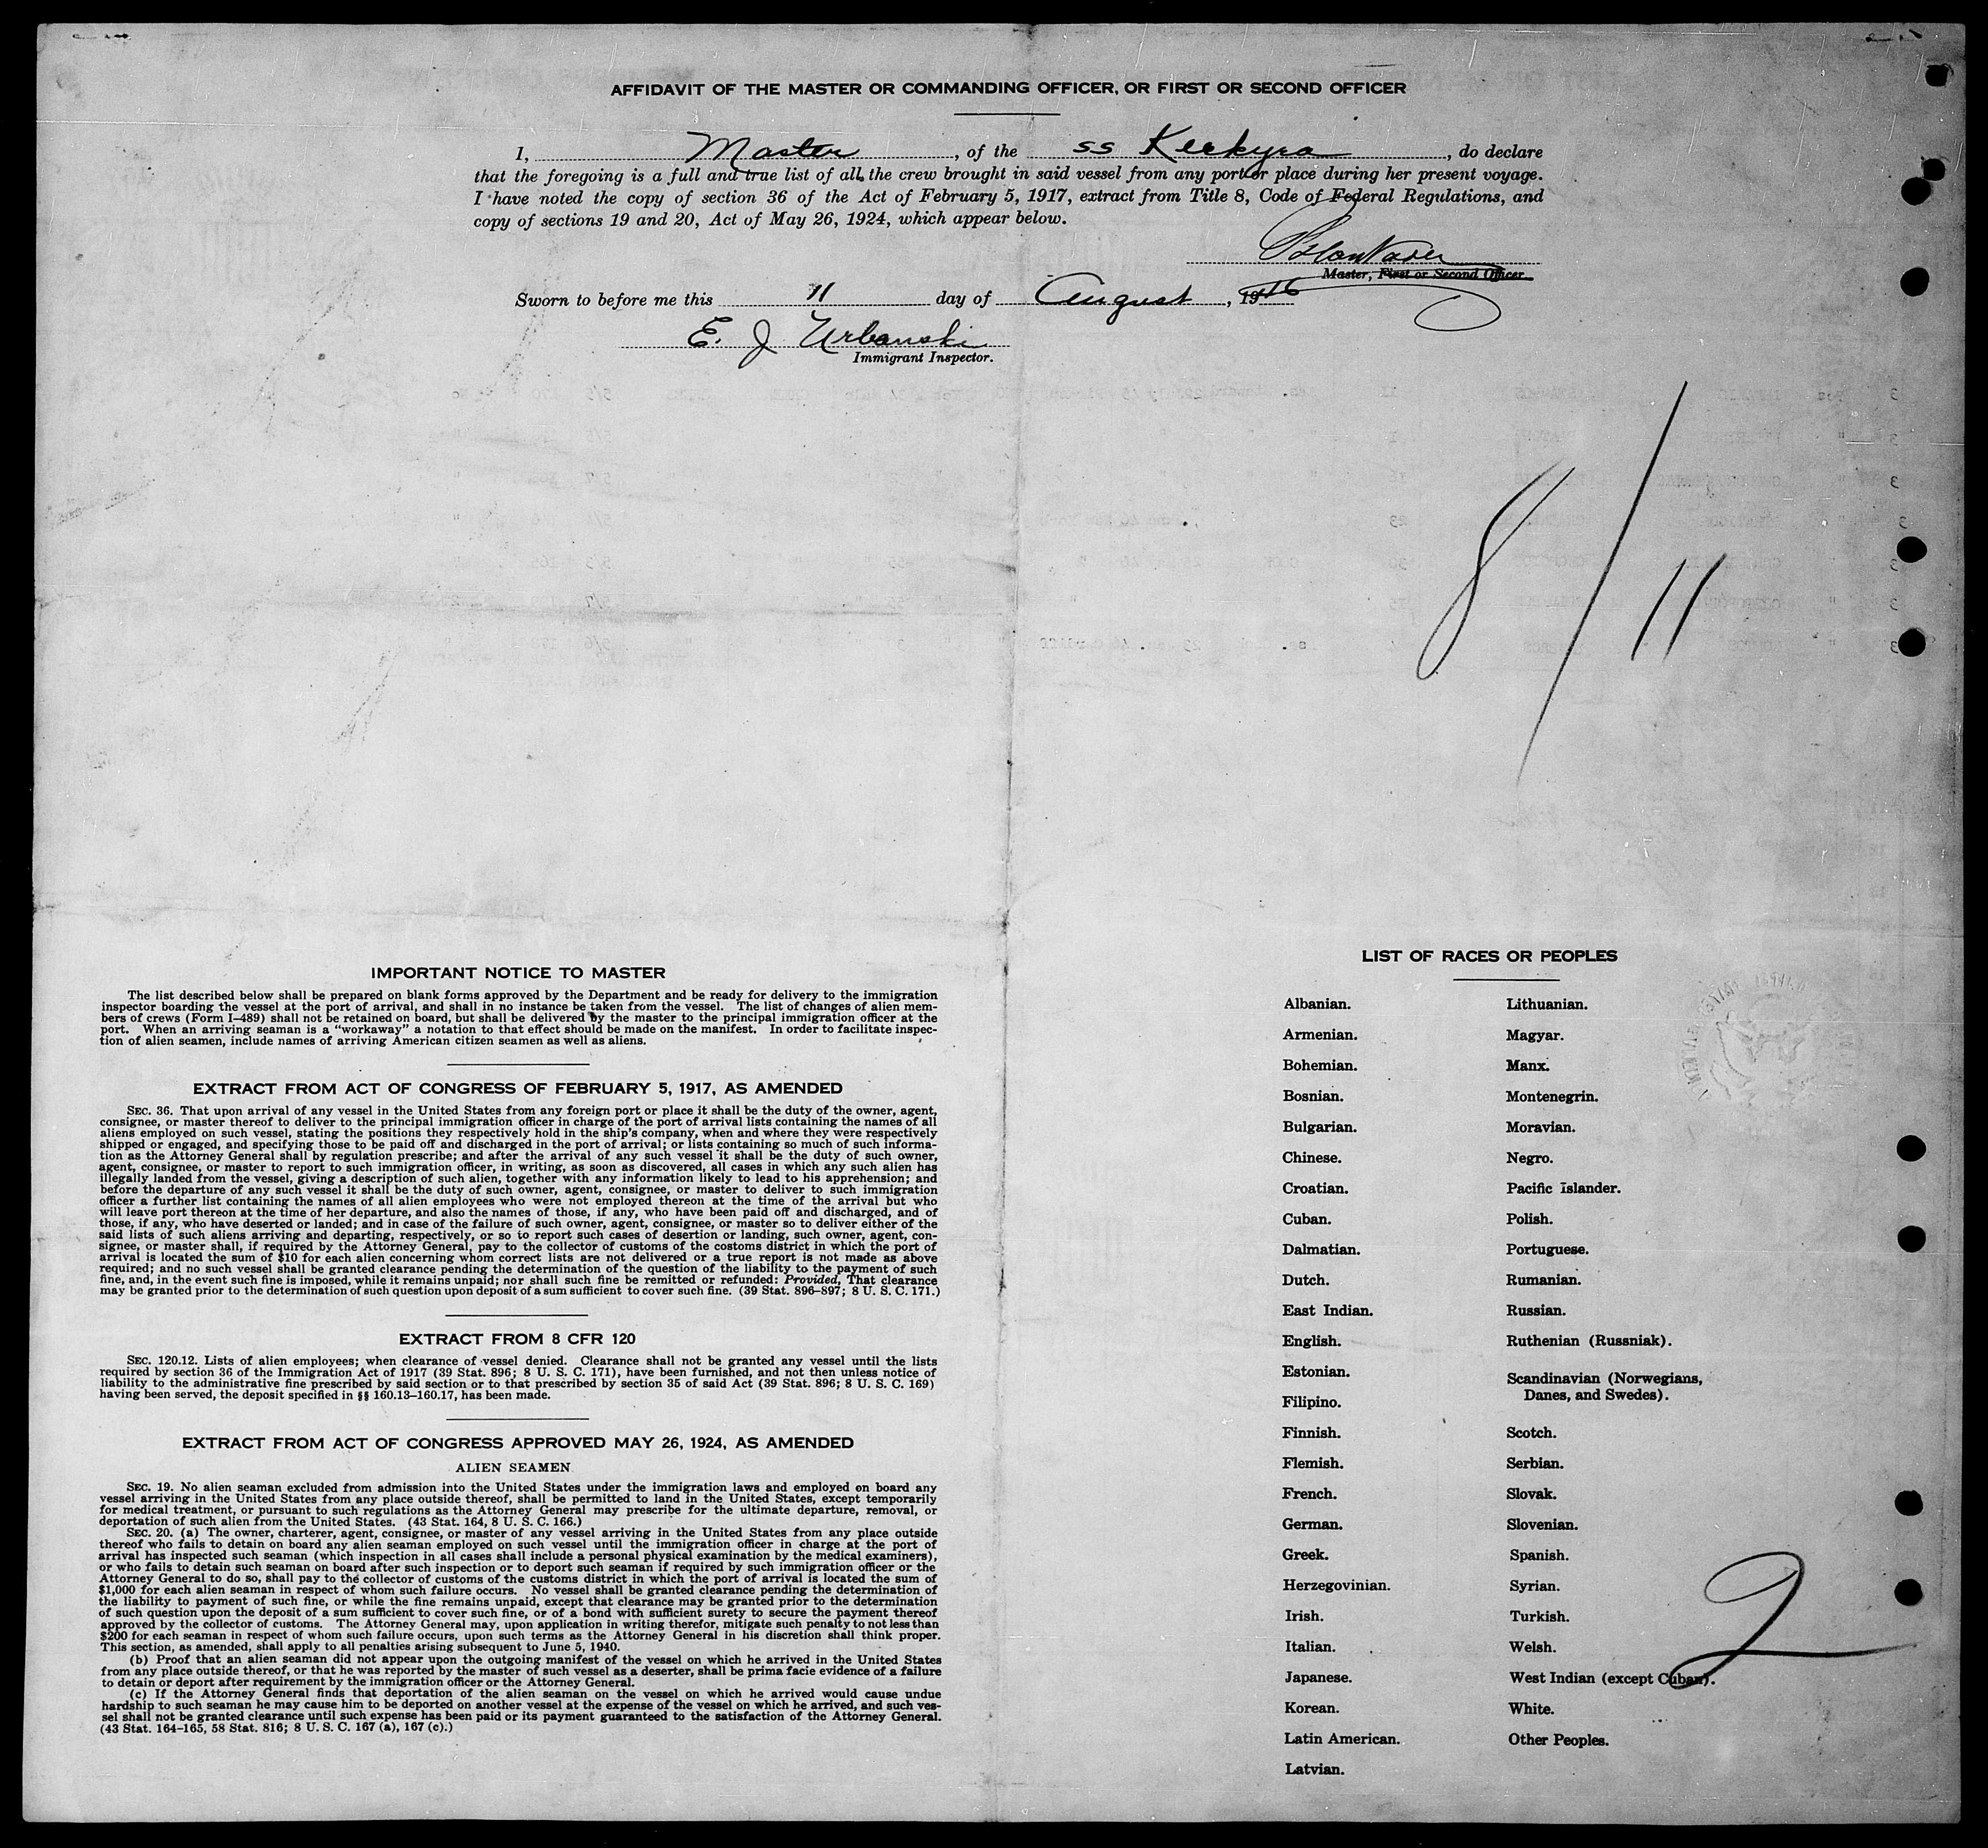 AFFIDAVIT OF THE MASTER OR COMMANDING OFFICER, OR FIRST OR SECOND OFFICER
I, Master, of the ss Kerkyra, do declare
that the foregoing is a full and true list of all the crew brought in said vessel from any port or place during her present voyage.
I have noted the copy of section 36 of the Act of February 5, 1917, extract from Title 8, Code of Federal Regulations, and
copy of sections 19 and 20, Act of May 26, 1924, which appear below.
Master, First or Second Officer
Sworn to before me this 11 day of August, 1946
E. J Urbanski
Immigrant Inspector.
8/11
IMPORTANT NOTICE TO MASTER
The list described below shall be prepared on blank forms approved by the Department and be ready for delivery to the immigration
inspector boarding the vessel at the port of arrival, and shall in no instance be taken from the vessel. The list of changes of alien mem-
bers of crews (Form I-489) shall not be retained on board, but shall be delivered by the master to the principal immigration officer at the
port. When an arriving seaman is a "workaway" a notation to that effect should be made on the manifest. In order to facilitate inspec-
tion of alien seamen, include names of arriving American citizen seamen as well as aliens.
EXTRACT FROM ACT OF CONGRESS OF FEBRUARY 5, 1917, AS AMENDED
SEC. 36. That upon arrival of any vessel in the United States from any foreign port or place it shall be the duty of the owner, agent,
consignee, or master thereof to deliver to the principal immigration officer in charge of the port of arrival lists containing the names of all
aliens employed on such vessel, stating the positions they respectively hold in the ship's company, when and where they were respectively
shipped or engaged, and specifying those to be paid off and discharged in the port of arrival; or lists containing so much of such informa-
tion as the Attorney General shall by regulation prescribe; and after the arrival of any such vessel it shall be the duty of such owner,
agent, consignee, or master to report to such immigration officer, in writing, as soon as discovered, all cases in which any such alien has
illegally landed from the vessel, giving a description of such alien, together with any information likely to lead to his apprehension; and
before the departure of any such vessel it shall be the duty of such owner, agent, consignee, or master to deliver to such immigration
officer a further list containing the names of all alien employees who were not employed thereon at the time of the arrival but who
will leave port thereon at the time of her departure, and also the names of those, if any, who have been paid off and discharged, and of
those, if any, who have deserted or landed; and in case of the failure of such owner, agent, consignee, or master so to deliver either of the
said lists of such aliens arriving and departing, respectively, or so to report such cases of desertion or landing, such owner, agent, con-
signee, or master shall, if required by the Attorney General, pay to the collector of customs of the costoms district in which the port of
arrival is located the sum of $10 for each alien concerning whom correct lists are not delivered or a true report is not made as above
required; and no such vessel shall be granted clearance pending the determination of the question of the liability to the payment of such
fine, and, in the event such fine is imposed, while it remains unpaid; nor shall such fine be remitted or refunded: Provided, That clearance
may be granted prior to the determination of such question upon deposit of a sum sufficient to cover such fine. (39 Stat. 896-897; 8 U. S. C. 171.)
EXTRACT FROM 8 CFR 120
SEC. 120.12. Lists of alien employees; when clearance of vessel denied. Clearance shall not be granted any vessel until the lists
required by section 36 of the Immigration Act of 1917 (39 Stat. 896; 8 U. S. C. 171), have been furnished, and not then unless notice of
liability to the administrative fine prescribed by said section or to that prescribed by section 35 of said Act (39 Stat. 896; 8 U. S. C. 169)
having been served, the deposit specified in §§ 160.13-160.17, has been made.
EXTRACT FROM ACT OF CONGRESS APPROVED MAY 26, 1924, AS AMENDED
ALIEN SEAMEN
SEC. 19. No alien seaman excluded from admission into the United States under the immigration laws and employed on board any
vessel arriving in the United States from any place outside thereof, shall be permitted to land in the United States, except temporarily
for medical treatment, or pursuant to such regulations as the Attorney General may prescribe for the ultimate departure, removal, or
deportation of such alien from the United States. (43 Stat. 164, 8 U. S. C. 166.)
SEC. 20. (a) The owner, charterer, agent, consignee, or master of any vessel arriving in the United States from any place outside
thereof who fails to detain on board any alien seaman employed on such vessel until the immigration officer in charge at the port of
arrival has inspected such seaman (which inspection in all cases shall include a personal physical examination by the medical examiners),
or who fails to detain such seaman on board after such inspection or to deport such seaman if required by such immigration officer or the
Attorney General to do so, shall pay to the collector of customs of the customs district in which the port of arrival is located the sum of
$1,000 for each alien seaman in respect of whom such failure occurs. No vessel shall be granted clearance pending the determination of
the liability to payment of such fine, or while the fine remains unpaid, except that clearance may be granted prior to the determination
of such question upon the deposit of a sum sufficient to cover such fine, or of a bond with sufficient surety to secure the payment thereof
approved by the collector of customs. The Attorney General may, upon application in writing therefor, mitigate such penalty to not less than
$200 for each seaman in respect of whom such failure occurs, upon such terms as the Attorney General in his discretion shall think proper.
This section, as amended, shall apply to all penalties arising subsequent to June 5, 1940.
(b) Proof that an alien seaman did not appear upon the outgoing manifest of the vessel on which he arrived in the United States
from any place outside thereof, or that he was reported by the master of such vessel as a deserter, shall be prima facie evidence of a failure
to detain or deport after requirement by the immigration officer or the Attorney General.
(c) If the Attorney General finds that deportation of the alien seaman on the vessel on which he arrived would cause undue
hardship to such seaman he may cause him to be deported on another vessel at the expense of the vessel on which he arrived, and such ves-
sel shall not be granted clearance until such expense has been paid or its payment guaranteed to the satisfaction of the Attorney General.
(43 Stat. 164-165, 58 Stat. 816; 8 U. S. C. 167 (a), 167 (c).)
LIST OF RACES OR PEOPLES
Albanian.
Armenian.
Bohemian.
Bosnian.
Bulgarian.
Chinese.
Croatian.
Cuban.
Dalmatian.
Dutch.
East Indian.
English.
Estonian.
Filipino.
Finnish.
Flemish.
French.
German.
Greek.
Herzegovinian.
Irish.
Italian.
Japanese.
Korean.
Latin American.
Latvian.
Lithuanian.
Magyar.
Manx.
Montenegrin.
Moravian.
Negro.
Pacific Islander.
Polish.
Portuguese.
Rumanian.
Russian.
Ruthenian (Russniak).
Scandinavian (Norwegians,
Danes, and Swedes).
Scotch.
Serbian.
Slovak.
Slovenian.
Spanish.
Syrian.
Turkish.
Welsh.
West Indian (except Cuban).
White.
Other Peoples.
2